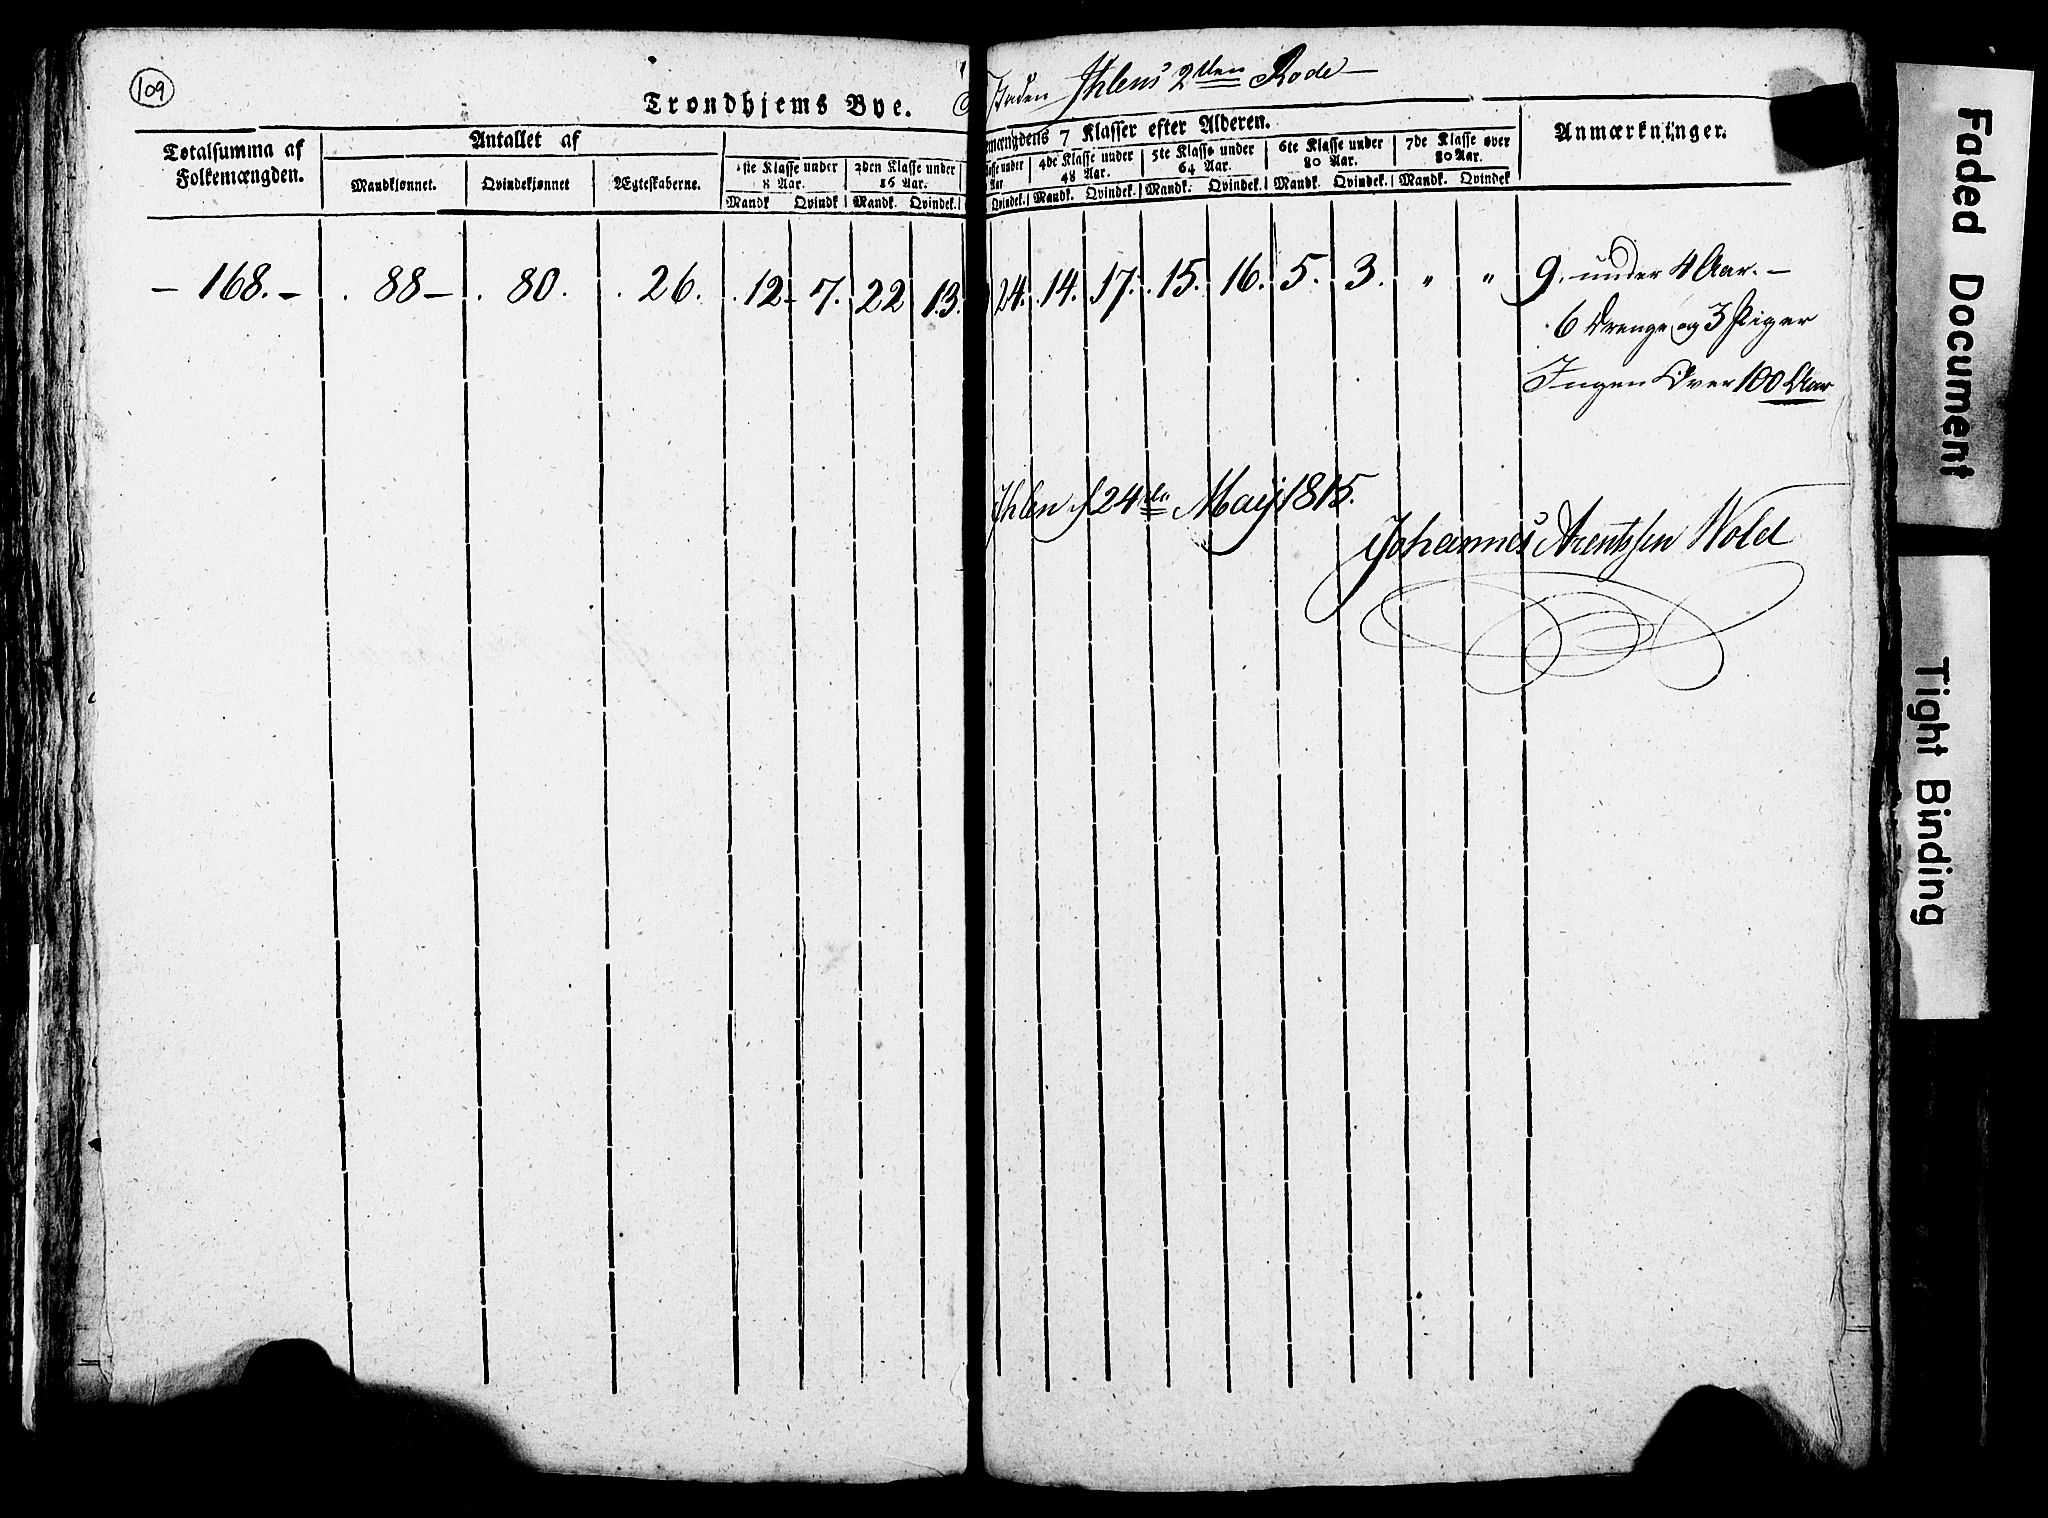 109
Trondhjems Bye. Staden Ihlens 2den Rode
Totalsumma af Folkemængden.
Antallet af
Mandkjønnet. Qvindekjønnet Ægteskaberne.
mængdens 7 Klasser efter Alderen.
1ste Klasse under 8 Aar.
2den Klasse under 16 Aar.
under Aar
4de Klasse under 48 Aar.
5te Klasse under 64 Aar.
6te Klasse under 80 Aar.
7de Klasse over 80 Aar.
Anmærkninger.
Mandk Qvindk Mandk. Qvindek. Qvindek. Mandk. Qvindek. Mandk. Qvindek. Mandk. Qvindek. Mandk. Qvindek
– 168. – . 88 – . 80 . . 26. . 12 - 7. 22 13. 24. 14. 17. . 15. 16. 5. 3. " " 9. under 4 Aar. –
6 Drenge og 3 Piger
Ingen Over 100 Aar
Ihlen d 24de Maij 1815.
Johannes Arentssen Wold
Faded Document
Tight Binding